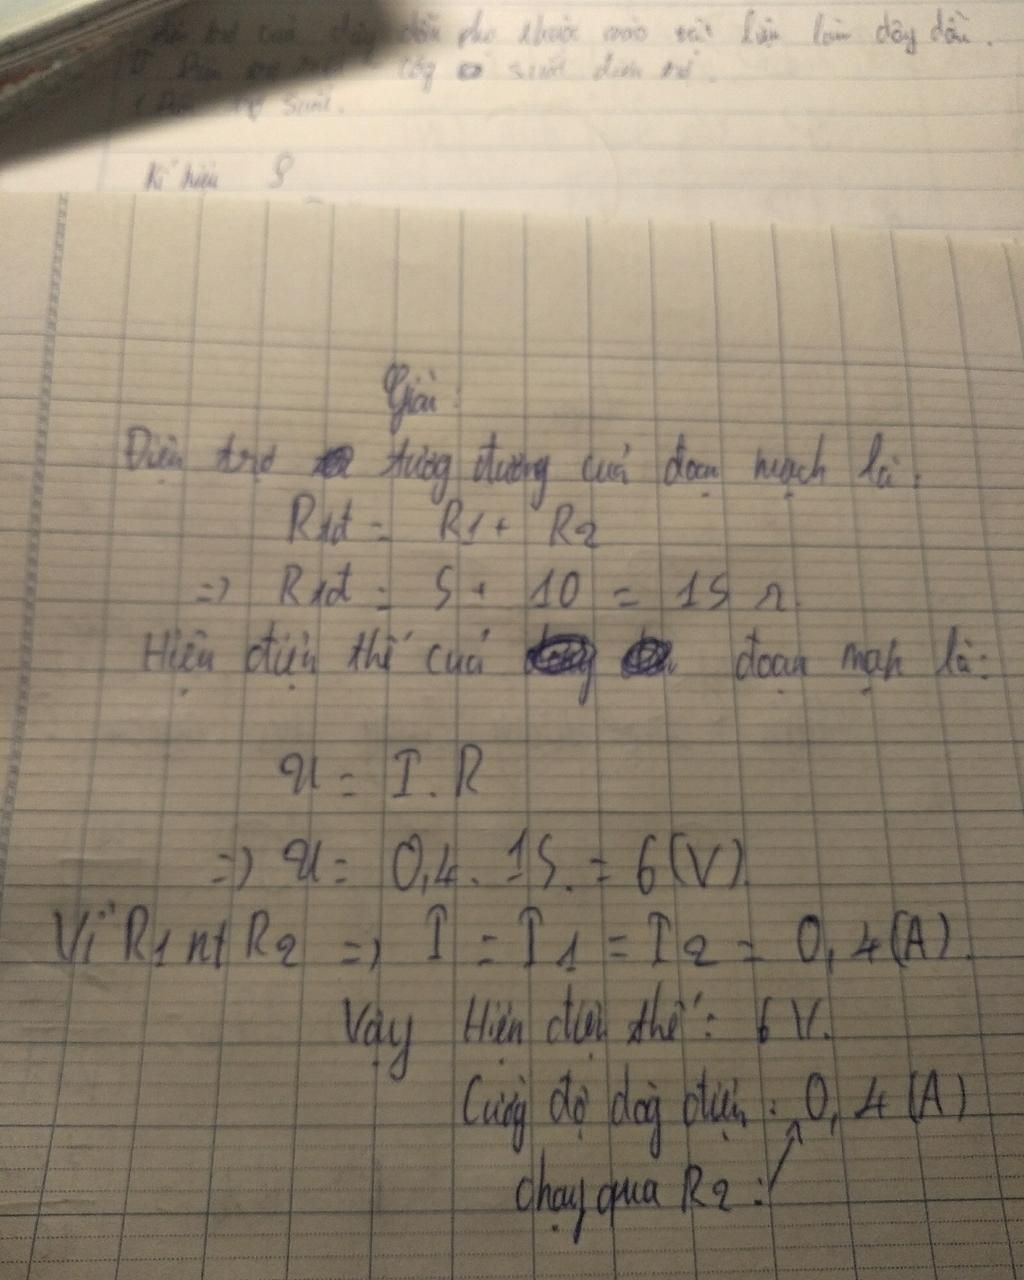 của dây dẫn phụ thuộc vào vật liệu làm dây dẫn.
suất điện trở.
suất.
Kí hiệu ρ
Giải:
Điện trở tương đương của đoạn mạch là:
Rtđ = R1 + R2
=> Rtđ = 5 + 10 = 15 Ω
Hiệu điện thế của đoạn mạh là:
U = I.R
=> U = 0,4. 15. = 6(V).
Vì R1 nt R2 => I = I1 = I2 = 0,4(A).
Vậy Hiệu điện thế: 6V.
Cường độ dòg điện: 0,4(A)
chạy qua R2: